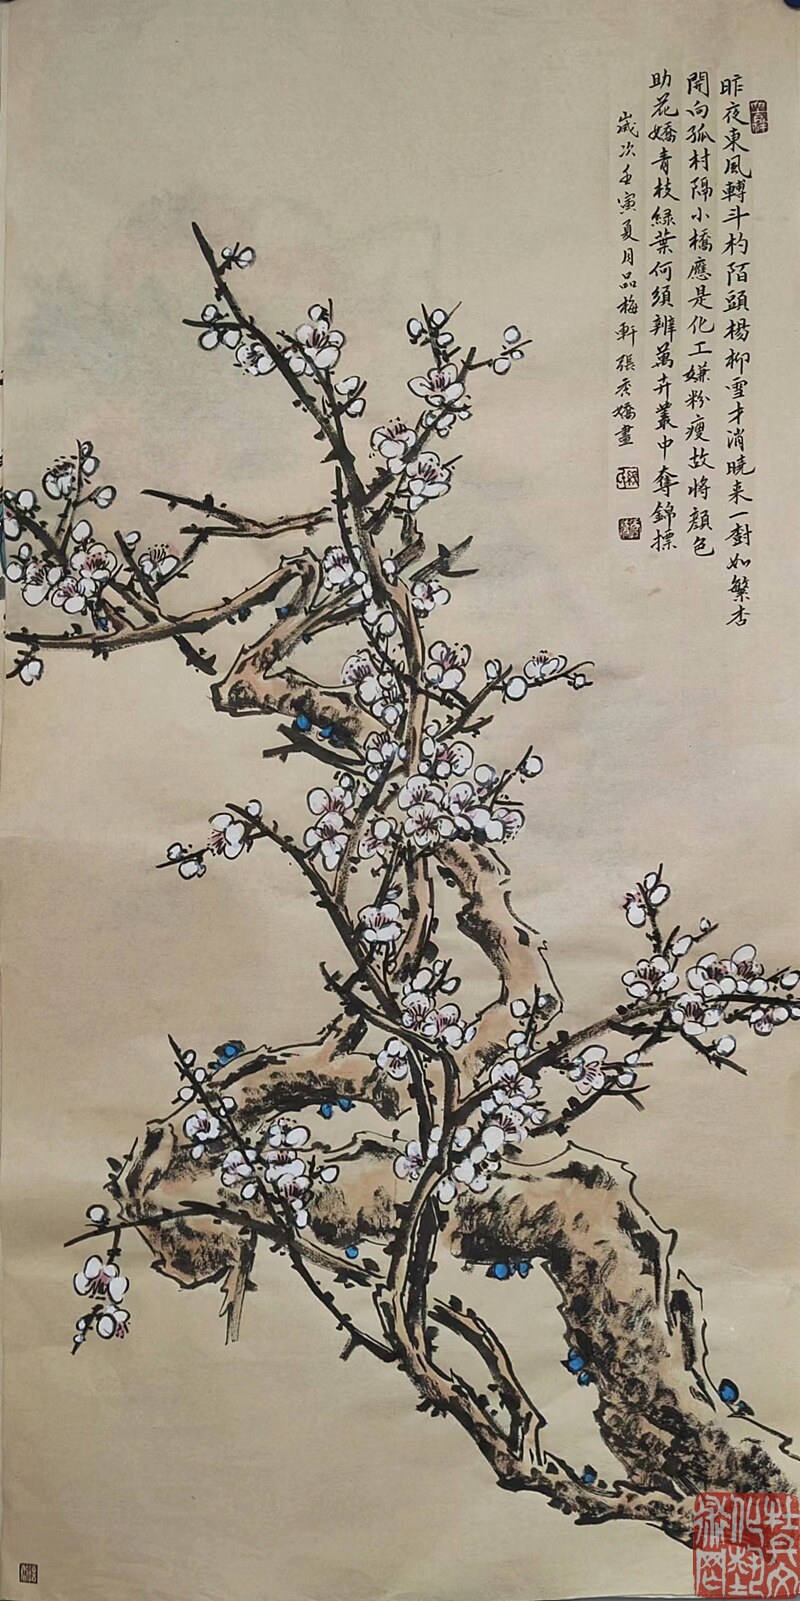 昨夜東風轉斗杓陌頭楊柳雪才消曉来一對如繁杏
開向孤村隔小橋應是化工嫌粉瘦故將顏色
助花嬌青枝綠葉何須辨萬卉叢中奪錦標
歲次壬寅夏月品梅軒張彥嬌畫
杜兵文化藝術网